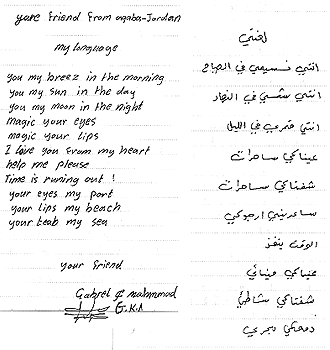 youre friend from aqaba-Jordan
my language
you my breez in the morning
you my sun in the day
you my moon in the night
magic your eyes
magic your lips
I love you from my heart
help me please
Time is runing out !
your eyes my port
your lips my beach
your teab my sea
your friend
Gabrel & mahmmad
G.K.A
لغتي
انتي نسيمي في الصباح
انتي شمسي في النهار
انتي قمري في الليل
عيناكي ساحرات
شفتاكي ساحرات
ساعديني ارجوكي
الوقت ينفذ
عيناكي مينائي
شفتاكي شاطئي
دمعتكي بحري